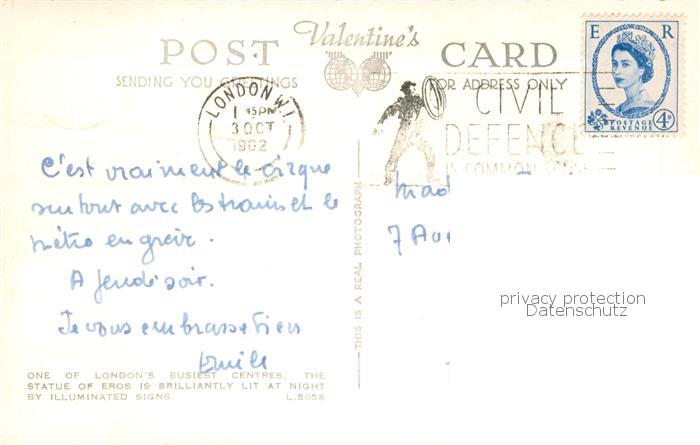 POST
Valentine's
CARD
SENDING YOU GREETINGS
FOR ADDRESS ONLY
E R
4D
POSTAGE
REVENUE
LONDON. W.1.
PM
3 OCT
1962
CIVIL
DEFENCE
IS COMMON SENSE
C'est vraiment le cirque
surtout avec les trains et le
métro en grève.
A jeudi soir.
Je vous embrasse bien
Emile
7 Av
THIS IS A REAL PHOTOGRAPH
privacy protection
Datenschutz
ONE OF LONDON'S BUSIEST CENTRES, THE
STATUE OF EROS IS BRILLIANTLY LIT AT NIGHT
BY ILLUMINATED SIGNS. L.5058